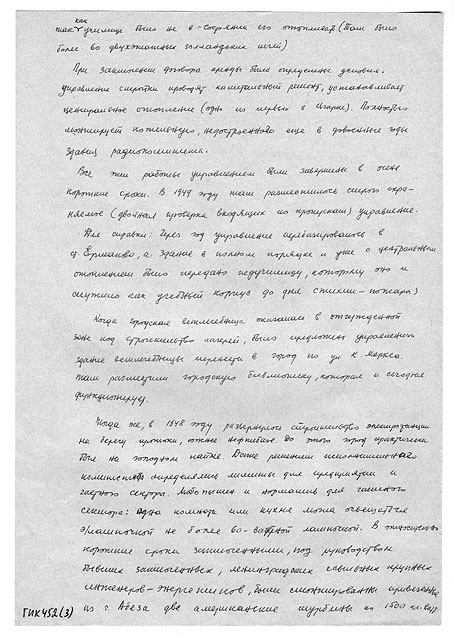 как
так училище было не в состоянии его отопливать (там было
более 60 двухэтажных голландских печей)
При заключении договора аренды были определены условия:
управление стройки проводит капитальный ремонт, устанавливает
центральное отопление (одно из первых в Игарке). Полностью
монтирует котельную, недостроенного еще в довоенные годы
здания радиополитехникума.
Все эти работы управлением были завершены в очень
короткие сроки. В 1949 году там разместилось строго охра-
няемое (двойная проверка входящих по пропускам) управление.
Для справки: Через год управление перебазировалось в
п. Ермаково, а здание в полном порядке и уже с центральным
отоплением было передано педучилищу, которому оно и
служило как учебный корпус до дня стихии-пожара)
Когда городская ветлечебница оказалась в отчужденной
зоне под строительство лагерей, было предложено управлению
здание ветлечебницы перенести в город на ул К. Маркса.
Там разместили городскую библиотеку, которая и сегодня
функционирует.
Когда же, в 1948 году развернулось строительство электростанции
на берегу протоки, южнее нефтебазы. До этого город практически
был на голодном пайке. Даже решением исполнительного
комитета определялись лимиты для предприятий и
частного сектора. Был и норматив для частного
сектора: одна комната или кухня могла освещаться
эл.лампочкой не более 60-ваттной лампочкой. В относительно
короткие сроки заключенными, под руководством
бывших заключенных, ленинградских ссыльных крупных
инженеров-энергетиков, были смонтированы привезенные
из г. Абеза две американские турбины по 1500 кв.
ГИК 452(3)